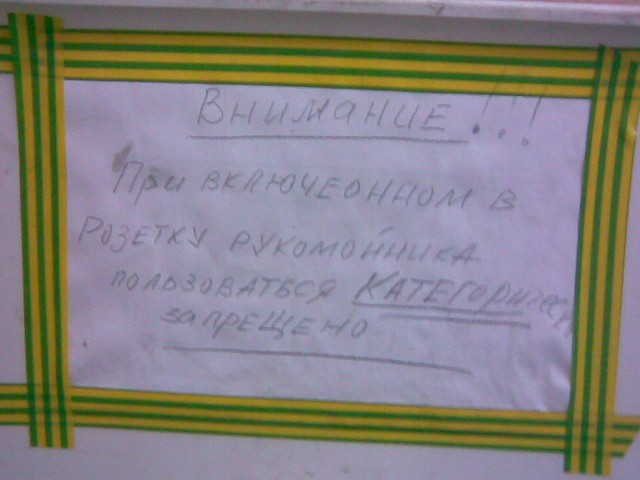 ВНИМАНИЕ!!!
При включеонном в
розетку рукомойника
пользоваться КАТЕГОРически
запрещено